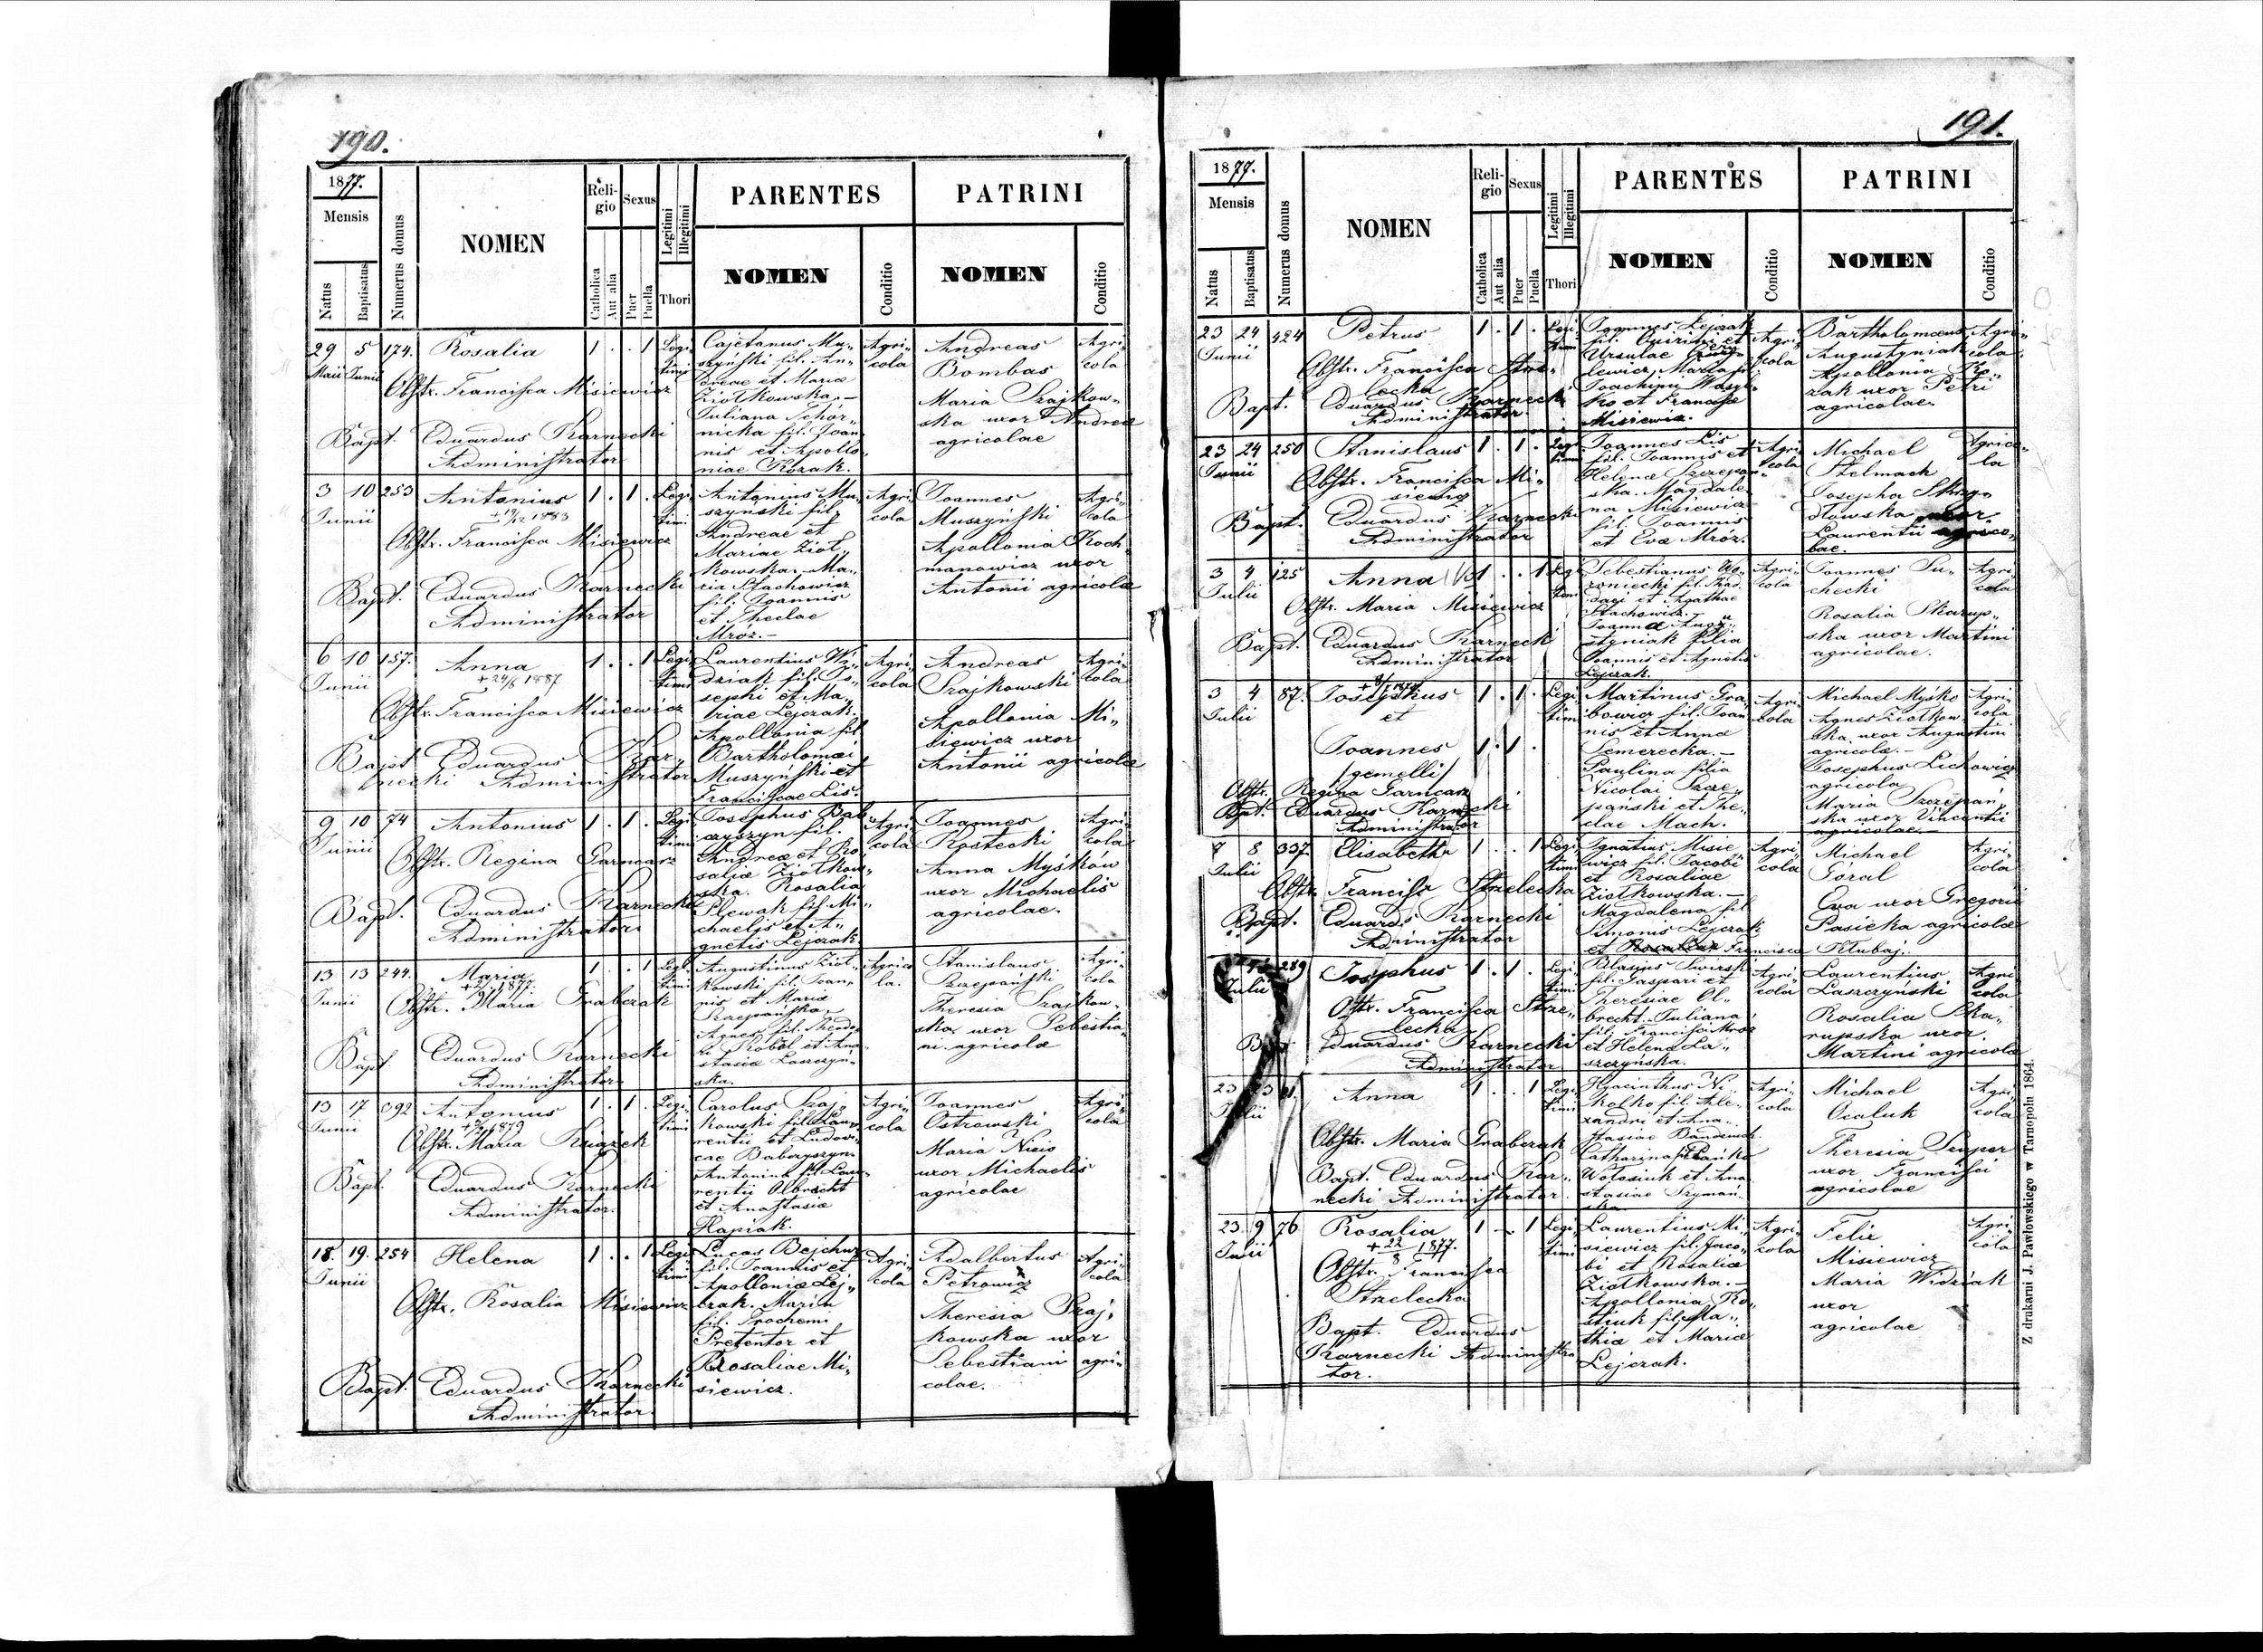 190.
1877.
Mensis
Natus
Baptisatus
Numerus domus
NOMEN
Religio
Catholica
Aut alia
Sexus
Puer
Puella
Legitimi
Illegitimi
Thori
PARENTES
NOMEN
Conditio
PATRINI
NOMEN
Conditio
29 5 174. Rosalia 1 . . 1 Legi-
Maii Junii timi
Obstr. Francisca Misiewicz
Bapt. Eduardus Karnecki
Administrator
Cajetanus Mu-
szyński fil. An-
dreae et Maria
Ziołkowska.–
Juliana
nicka fil. Joan
nis et Apollo
niae Kozak.
Agri-
cola
Andreas
Bombas
Maria Szajkow-
ska uxor Andreae
agricolae
Agri-
cola
3 10 253 Antonius 1 . 1 . Legi-
Junii timi
+ 19/12 1883
Obstr. Francisca Misiewicz
Bapt. Eduardus Karnecki
Administrator
Antonius Mu-
szyński fil.
Andreae et
Mariae Zioł-
kowska. Ma-
ria Stachowicz
fil. Joannis
et Theclae
Mróz.–
Agri-
cola
Joannes
Muszyński
Apollonia Koch
manowicz uxor
Antonii agricolae
Agri-
cola
6 10 157. Anna 1 . . 1 Legi-
Junii timi
1887
Obstr. Francisca Misiewicz
Bapt Eduardus Kar-
necki Administrator
Laurentius Wi-
dziak fil. Jo-
sephi et Ma-
riae Lejczak.
Apollonia fil
Bartholomaei
Muszyński et
Franciscae Lis.
Agri-
cola
Andreas
Szajkowski
Apollonia Mi-
siewicz uxor
Antonii agricolae
Agri-
cola
9 10 74 Antonius 1 . 1 . Legi-
Junii timi
Obstr. Regina Garncarz
Bapt. Eduardus Karnecki
Administrator
Josephus Bab-
czyszyn fil.
Andreae et Ro
saliae Ziołkow-
ska. Rosalia
Plewak fil. Mi-
chaelis et A-
gnetis Lejczak
Agri-
cola
Joannes
Kostecki
Anna Myśków
uxor Michaelis
agricolae.
Agri-
cola
13 13 244. Maria 1 . . 1 Legi-
Junii timi
1877.
Obstr. Maria Grabczak
Bapt Eduardus Karnecki
Administrator
Augustinus Zioł-
kowski fil. Joan-
nis et Maria
Szczepańska,
Agnes fil.
et Ana-
stasia Laszczyń-
ska.
Agrico
la.
Stanislaus
Szczepański
Theresia Szajkow-
ska uxor Sebestia-
ni agricolae
Agri-
cola
13 17 392 Antonius 1 . 1 . Legi-
Junii timi
1879
Obstr. Maria Książek
Bapt. Eduardus Karnecki
Administrator.
Carolus Szaj-
kowski fil. Lau-
rentii et Ludovi-
cae Babczyszyn.
Antonina fil. Lau-
rentii Olbracht
et Anastasiae
Hapiak.
Agri-
cola
Joannes
Ostrowski
Maria Nicio
uxor Michaelis
agricolae
Agri-
cola
18. 19. 254 Helena 1 . . 1 Legi-
Junii timi
Obstr. Rosalia Misiewicz
Bapt. Eduardus Karnecki
Administrator.
Lucas Bejchuz
fil. Joannis et
Apolloniae Lej-
czak. Maria
fil.
Pretentor et
Rosaliae Mi-
siewicz.
Agri-
cola
Adalbertus
Petrowicz
Theresia Szaj-
kowska uxor
Sebestiani agri-
colae.
Agri-
cola
191.
1877.
Mensis
Natus
Baptisatus
Numerus domus
NOMEN
Religio
Catholica
Aut alia
Sexus
Puer
Puella
Legitimi
Illegitimi
Thori
PARENTES
NOMEN
Conditio
PATRINI
NOMEN
Conditio
23 24 424 Petrus 1 . 1 . Legi-
Junii timi
Obstr. Francisca Strze-
lecka
Bapt. Eduardus Karnecki
Administrator
Joannes Lejczak
fil. Quirini et
Ursulae
lewicz, Maria fil
Joachymi Wasyl-
ko et Franciscae
Misiewicz.
Agri-
cola
Bartholomaeus
Augustyniak
Apollonia Ko-
zak uxor Petri
agricolae.
Agri-
cola
23 24 250 Stanislaus 1 . 1 . Legi-
Junii timi
Obstr. Francisca Mi-
siewicz
Bapt. Eduardus Karnecki
Administrator
Joannes Lis
fil. Joannis et
Helenae Szczepań-
ska. Magdale-
na Misiewicz
fil. Joannis
et Evae Mróz.
Agri-
cola
Michael
Stelmach
Josepha
dłowska uxor
Laurentii agrico-
lae.
Agrico-
la
3 4 125 Anna 1 . . 1 Legi-
Julii timi
Obstr. Maria Misiewicz
Bapt. Eduardus Karnecki
Administrator
Sebestianus Wo-
zoniecki fil.
et Agathae
Stachowicz.–
Joanna Augu-
styniak filia
Joannis et Agnetis
Lejczak.
Agri-
cola
Joannes Su-
checki
Rosalia Skarup-
ska uxor Martini
agricolae.
Agri-
cola
3 4 87. Josephus 1 . 1 . Legi-
Julii timi
et
Joannes 1 . 1 .
/gemelli/
Obstr. Regina Garncarz
Bapt. Eduardus Karnecki
Administrator
Martinus Gra-
bowicz fil. Joan
nis et Anna
Semerecka.–
Paulina filia
Nicolai Szcze-
pański et The-
clae Mach.
Agri-
cola
Michael Myśko
Agnes Ziołkow-
ska uxor Augustini
agricolae.–
Josephus Lichowicz
agricola
Maria Szczepań-
ska uxor Vincentii
agricolae.–
Agri-
cola
7 8 337 Elisabetha 1 . . 1 Legi-
Julii timi
Obstr. Francisca Strzelecka
Bapt. Eduardus Karnecki
Administrator
Ignatius Misie
wicz fil. Jacobi
et Rosaliae
Ziołkowska.–
Magdalena fil
Simonis Lejczak
et Francisca
Agri-
cola
Michael
Góral
Eva uxor Gregorii
Pasieka agricolae
Kłubaj.
Agri-
cola
289 Josphus 1 . 1 . Legi-
Julii timi
Obstr. Francisca Strze-
lecka
Bapt Eduardus Karnecki
Administrator
Blasius Swirsk
fil. Gaspari et
Theresiae Ol-
brecht. Juliana
fil. Francisci Mróz
et Helena La-
szczyńska.
Agri-
cola
Laurentius
Laszczyński
Rosalia Ska-
rupska uxor
Martini agricolae
Agri-
cola
23 Anna 1 . . 1 Legi-
timi
Obstr. Maria Grabczak
Bapt. Eduardus Kar-
necki Administrator.
Hyacinthus Ni-
kołko fil. Ale-
xandri et Ana-
stasiae
Catharina fil.
Wołosiuk et Ana
stasiae Szymań-
ska
Agri-
cola
Michael
Ocaluk
Theresia
uxor Francisci
agricolae
Agri-
cola
23 9 76 Rosalia 1 . . 1 Legi-
timi
+ 22/8 1877.
Obstr. Francisca
Strzelecka
Bapt. Eduardus
Karnecki Administra
tor.
Laurentius Mi-
siewicz fil. Jaco-
bi et Rosaliae
Ziołkowska.–
Apollonia Ko-
stiuk fil. Ma-
thiae et Mariae
Lejczak.
Agri-
cola
Felix
Misiewicz
Maria Widziak
uxor
agricolae
Agri-
cola
Z drukarni J. Pawłowskiego w Tarnopolu 1864.